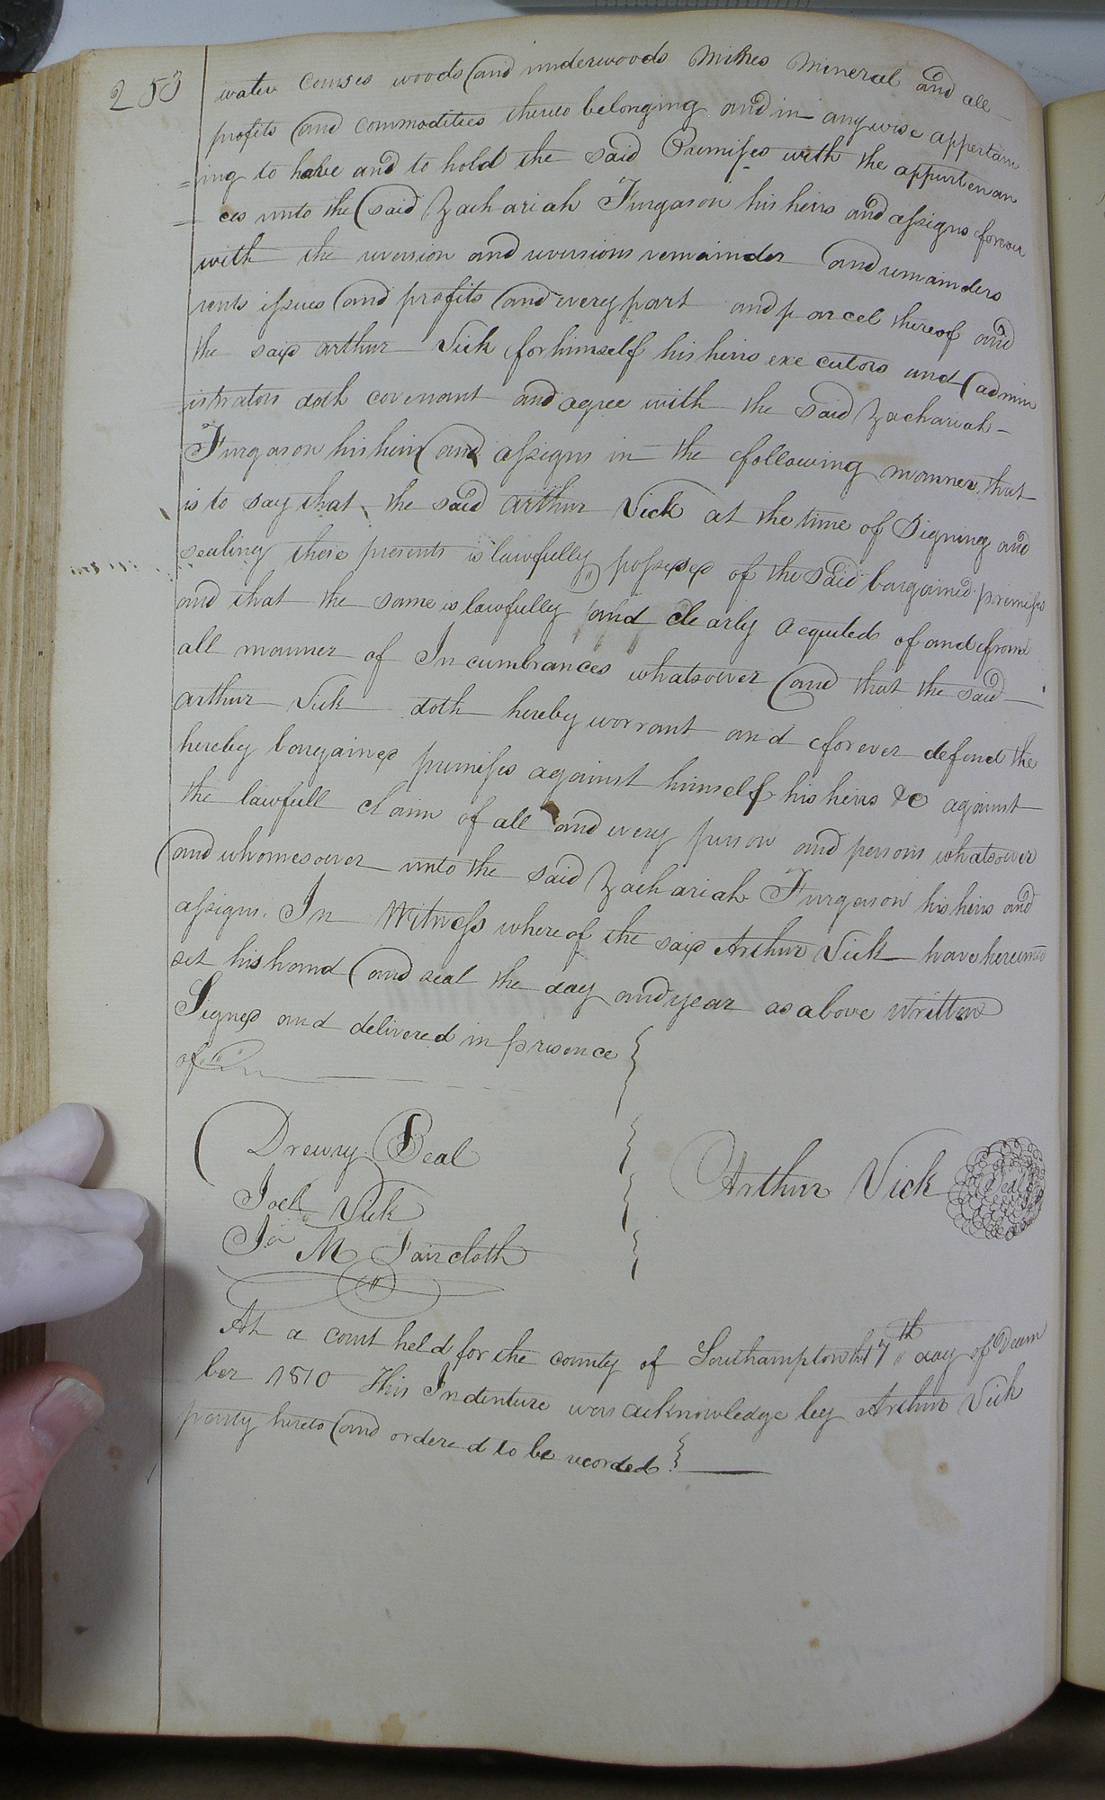 253
water courses woods and underwoods mines mineral and all
profits and commodities thereto belonging and in anywise appertain
=ing to have and to hold the said Premises with the appurtenan
=ces unto the said Zachariah Furgason his heirs and assigns forever
with the reversion and reversions remainder and remainders
rents issues and profits and every part and parcel thereof and
the said arthur Vick for himself his heirs executors and admin
=istrators doth covenant and agree with the said Zachariah
Furgason his heirs and assigns in the following manner that
is to say that the said arthur Vick at the time of Signing and
sealing these presents is lawfully possessed of the said bargained premises
and that the same is lawfully and clearly acquited of and from
all manner of Incumbrances whatsoever and that the said
arthur Vick doth hereby worrant and forever defend the
hereby bargained premises against himself his heirs &c against
the lawfull claim of all and every person and persons whatsoever
and whomesoever unto the said Zachariah Furgason his heirs and
assigns. In Witness whereof the said Arthur Vick have hereunto
set his hand and seal the day and year as above written
Signed and delivered in presence
of
Drewry Beal
Joel Vick
M Faircloth
Arthur Vick Seal
At a court held for the county of Southampton the 17th day of Decem
ber 1810 This Indenture was acknowledge by Arthur Vick
party hereto and ordered to be recorded